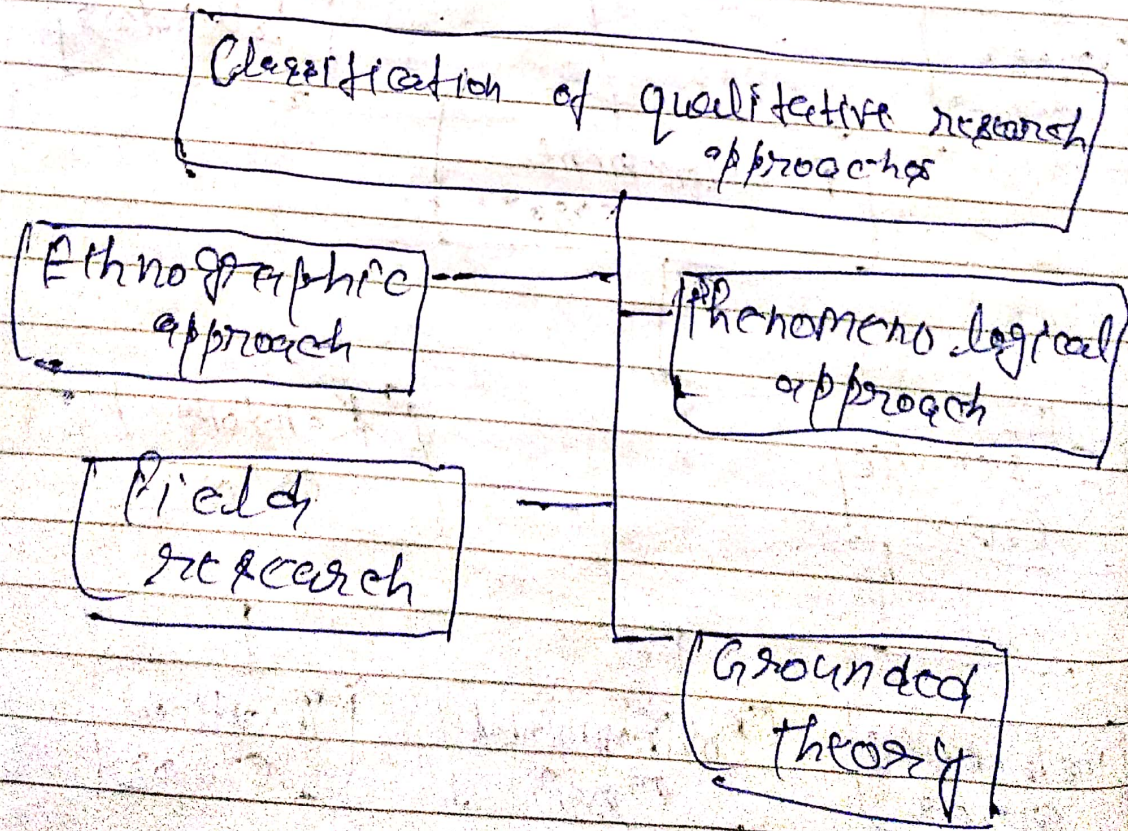 Classification of qualitative research
approaches
Ethnographic
approach
Phenomenological
approach
Field
research
Grounded
theory